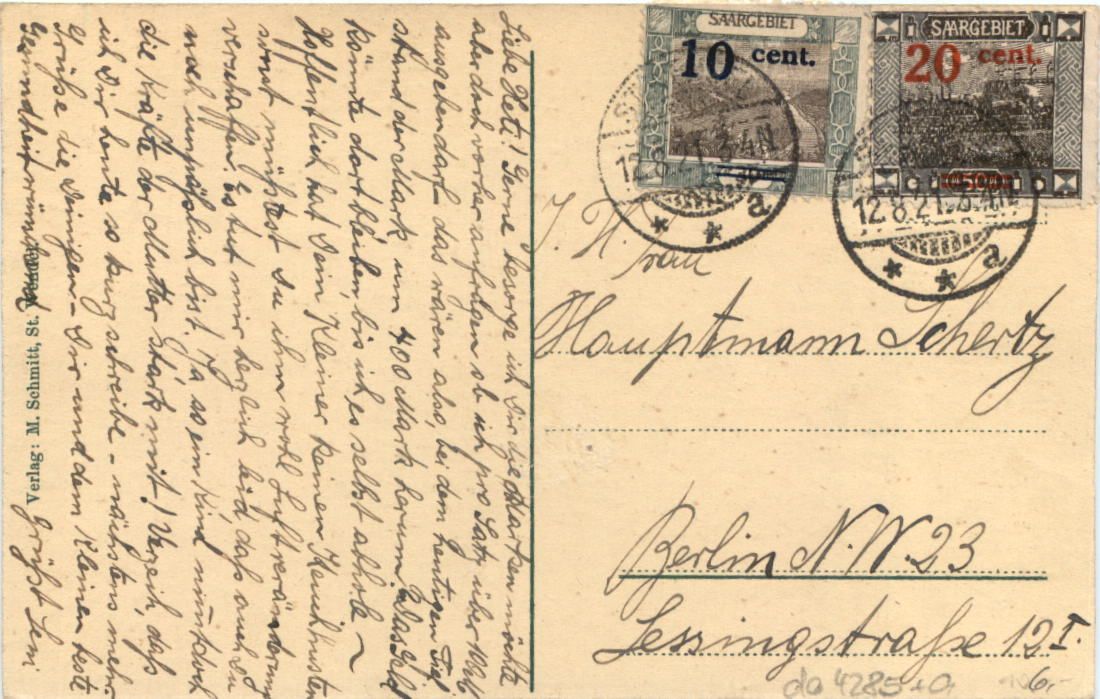 Liebe Heti! Gerne besorge ich Dir die Marken möchte
aber doch vorher anfragen ob ich pro Satz über M
ausgeben darf das wären also, bei dem heutigen Tief
stand der Mark um 400 Mark herum. Das Geld
könnte dort bleiben, bis ich es selbst abhole ~
Hoffentlich hat Dein Kleiner keinen Keuchhusten
sonst müßtest Du ihm wohl Luftveränderung
verschaffen. Es tut mir herzlich leid, daß auch Du
noch unpäßlich bist. Ja so ein Kind nimmt doch
die Kräfte der Mutter stark mit! Verzeih, daß
ich Dir heute so kurz schreibe - nächstens mehr
Grüße die Deinigen - Dir und dem Kleinen beste
Gesundheit wünschend
Grüßt Leni
Verlag: M. Schmitt, St. Wendel
SAARGEBIET
10 cent.
SAARGEBIET
20 cent.
12.8.21.3-4N
* * a
12.8.21.3-4N
* * a
I. H.
Frau
Hauptmann Schertz
Berlin N.W. 23
Lessingstraße 12 I.
6,-
da 4285+a